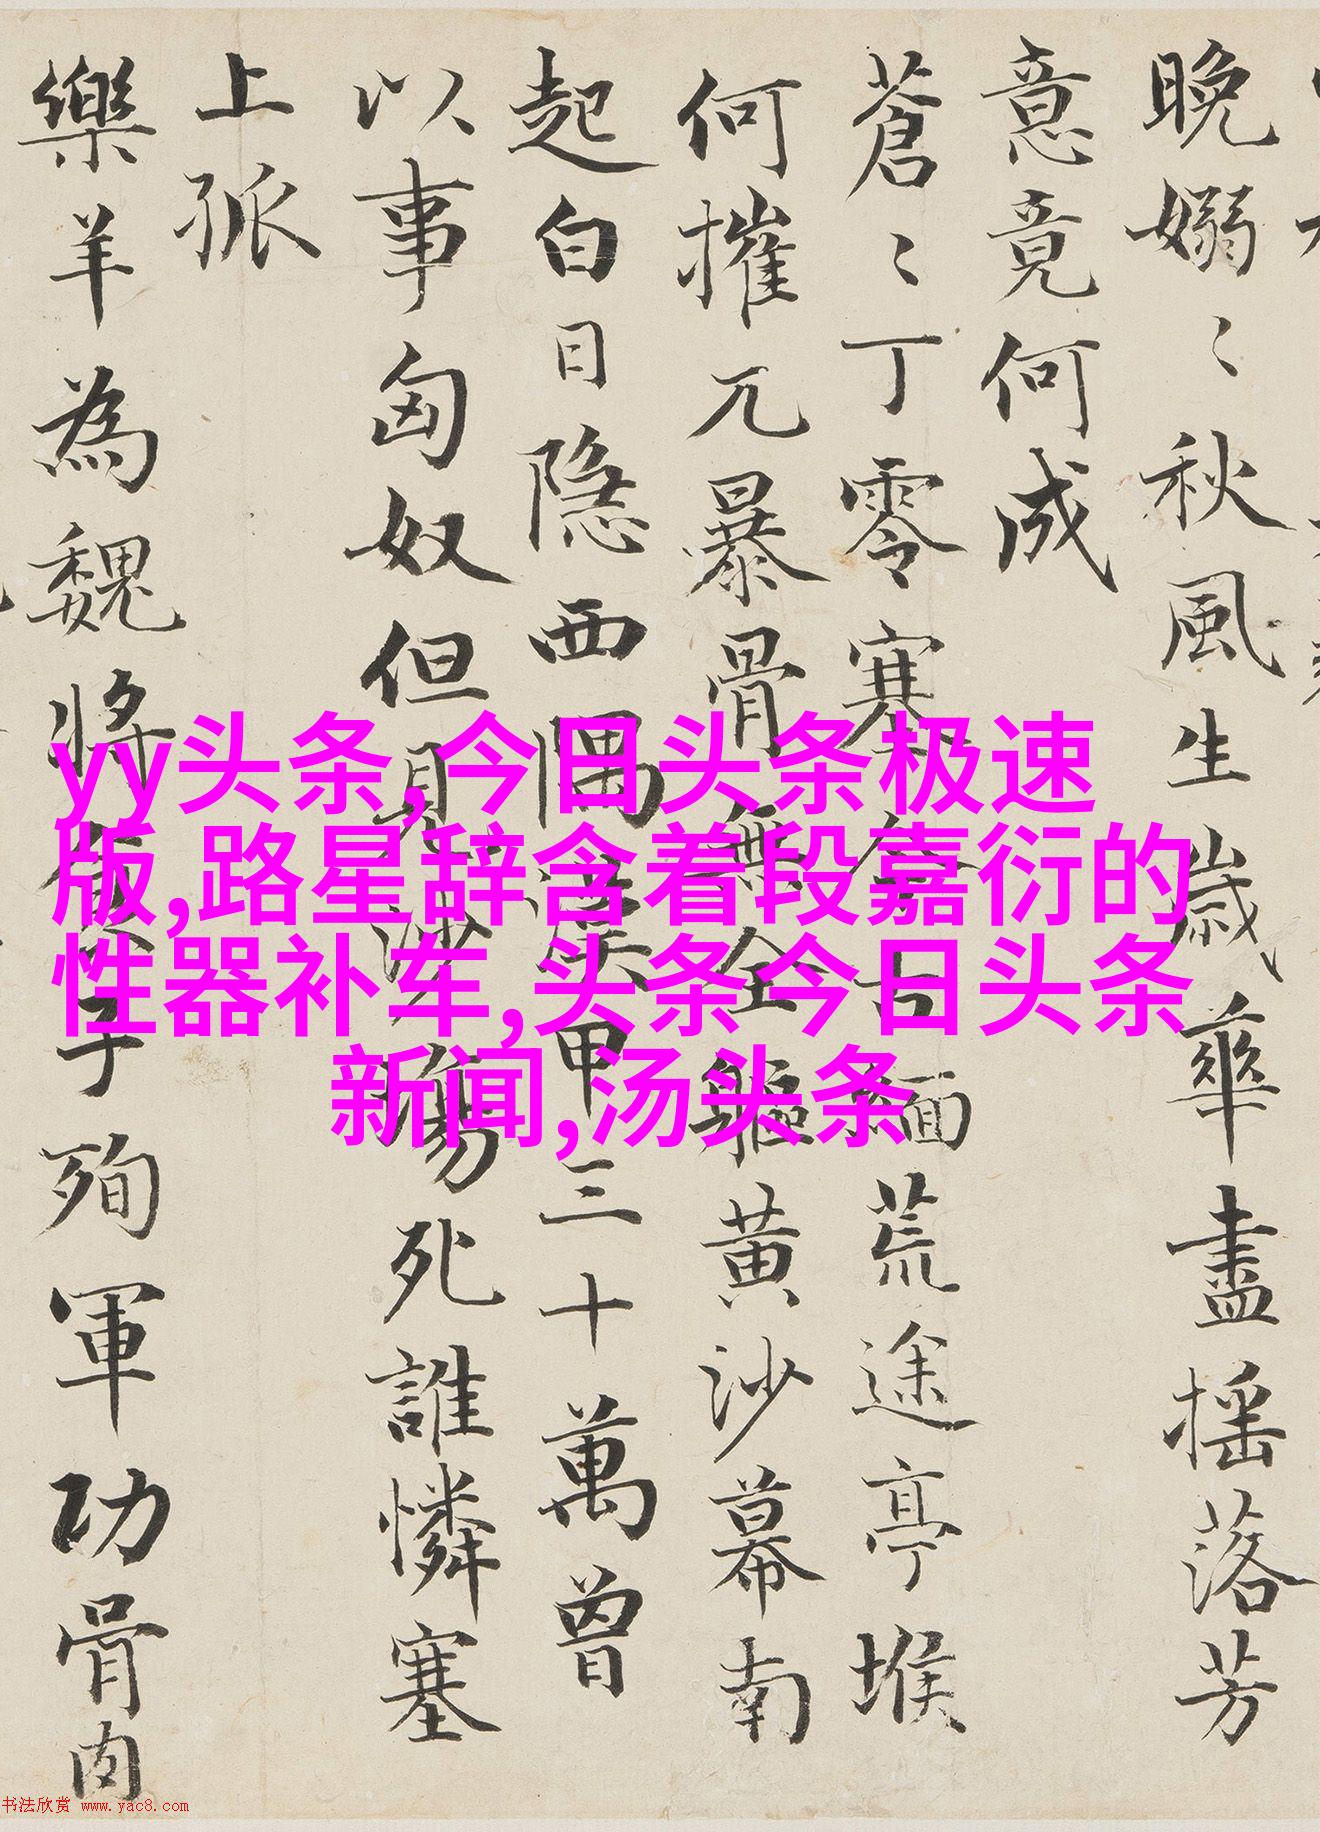 晚嫋〻秋風生歲華盡摇落芳
意竟何成
蒼〻丁零塞今古緬荒途亭堠
何摧兀暴骨無全軀黄沙幕南
起白日隐西隅漢甲三十萬曾
以事匈奴但見沙塲死誰憐塞
上孤
樂羊為魏將食子殉軍功骨肉
yy头条,今日头条极速
版,路星辞含着段嘉衍的
性器补车,头条今日头条
新闻,汤头条
书法欣赏 www.yac8.com